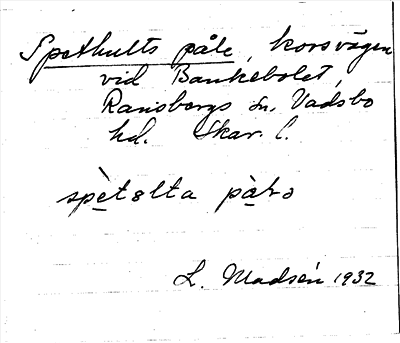 Spethults påle, korsvägen
vid Bankebolet,
Ransbergs sn. Vadsbo
hd. Skar. l.
L. Madsén 1932